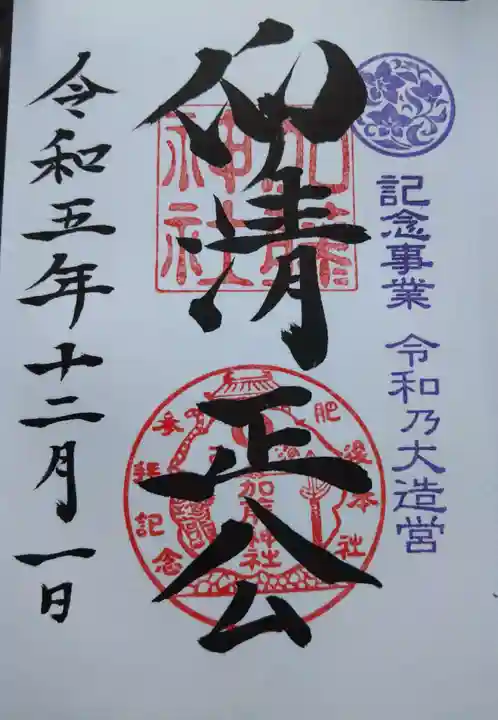 記念事業 令和乃大造営
仰清正公
加藤
神社
肥後本社
加藤神社
参拝記念
令和五年十二月一日